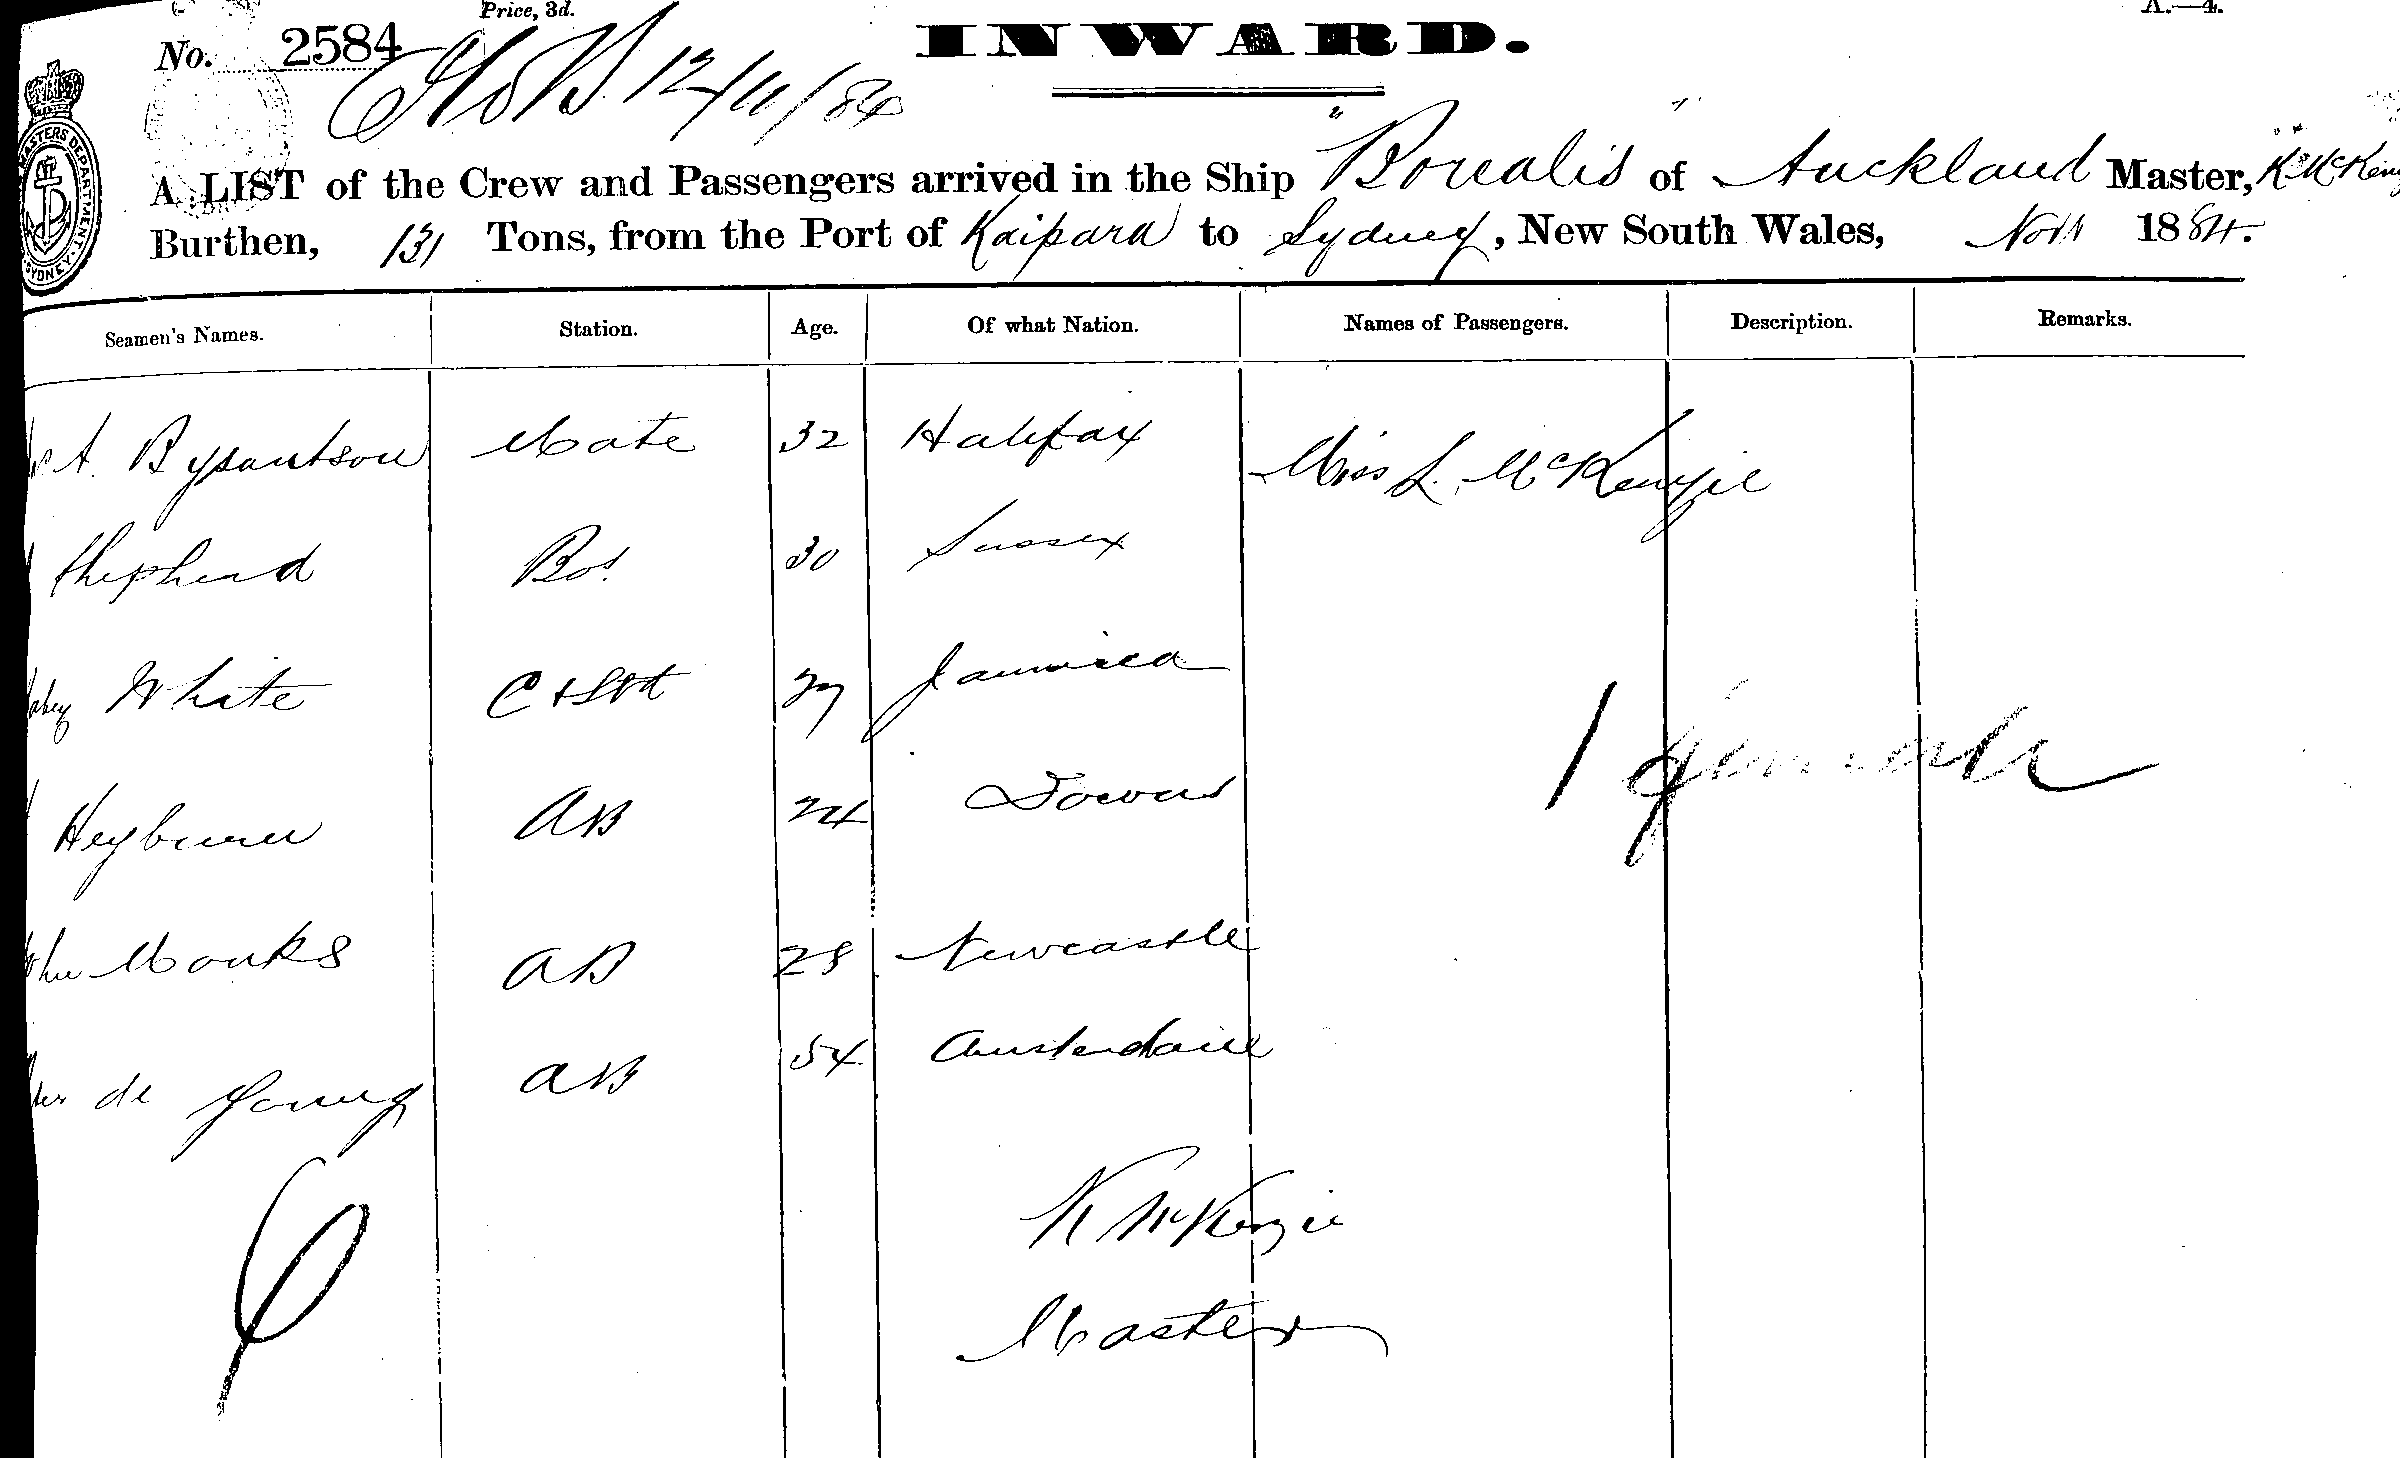 Price, 3d.
A.—4.
No. 2584
INWARD.
12/11/84
A LIST of the Crew and Passengers arrived in the Ship "Borealis" of Auckland Master, K McKenz
Burthen, 131 Tons, from the Port of Kaipara to Sydney, New South Wales, Novr 1884.
MASTERS DEPARTMENT SYDNEY
Seamen's Names. Station. Age. Of what Nation. Names of Passengers. Description. Remarks.
A. Bysantson Mate 32 Halifax Miss L. McKenzie
Shepherd Bos. 30 Sussex
White C & Std 27 Jamaica
Heyburn AB 24
Monks AB 28 Newcastle
de Jong AB 54 Amsterdam
1
6
K McKenzie
Master